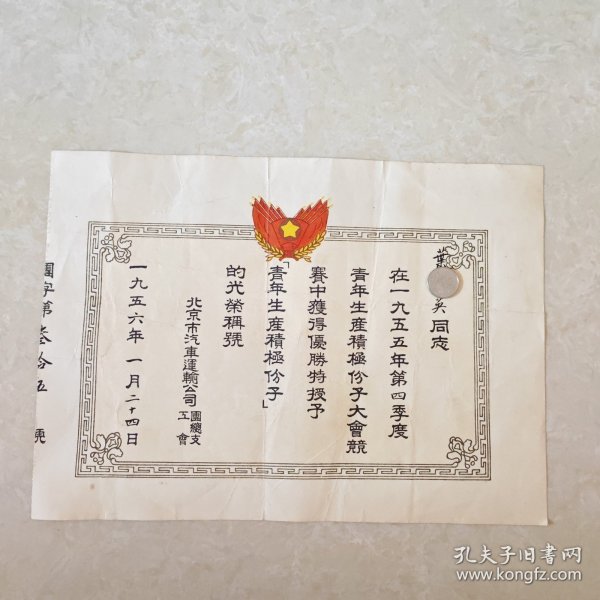 葉
英同志
在一九五五年第四季度
青年生產積極份子大會競
賽中獲得優勝特授予
「青年生產積極份子」
的光榮稱號
北京市汽車運輸公司
團總支
工會
一九五六年一月二十四日
團字第叁拾五號
孔夫子旧书网
www.kongfz.com